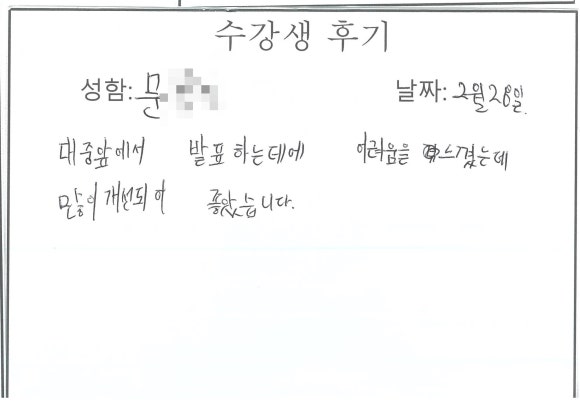 수강생 후기
성함: 문
날짜: 2월 28일.
대중앞에서 발표하는데에 어려움을 느꼈는데
많이 개선되어 좋았습니다.